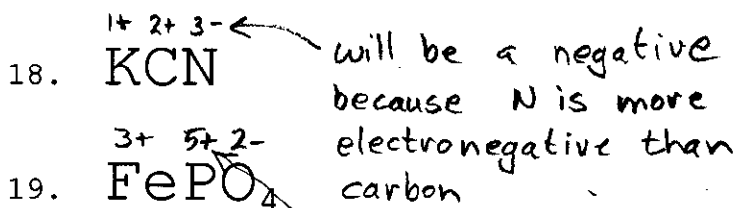 1+ 2+ 3-
18. KCN
will be a negative
because N is more
electronegative than
carbon
3+ 5+ 2-
19. FePO₄